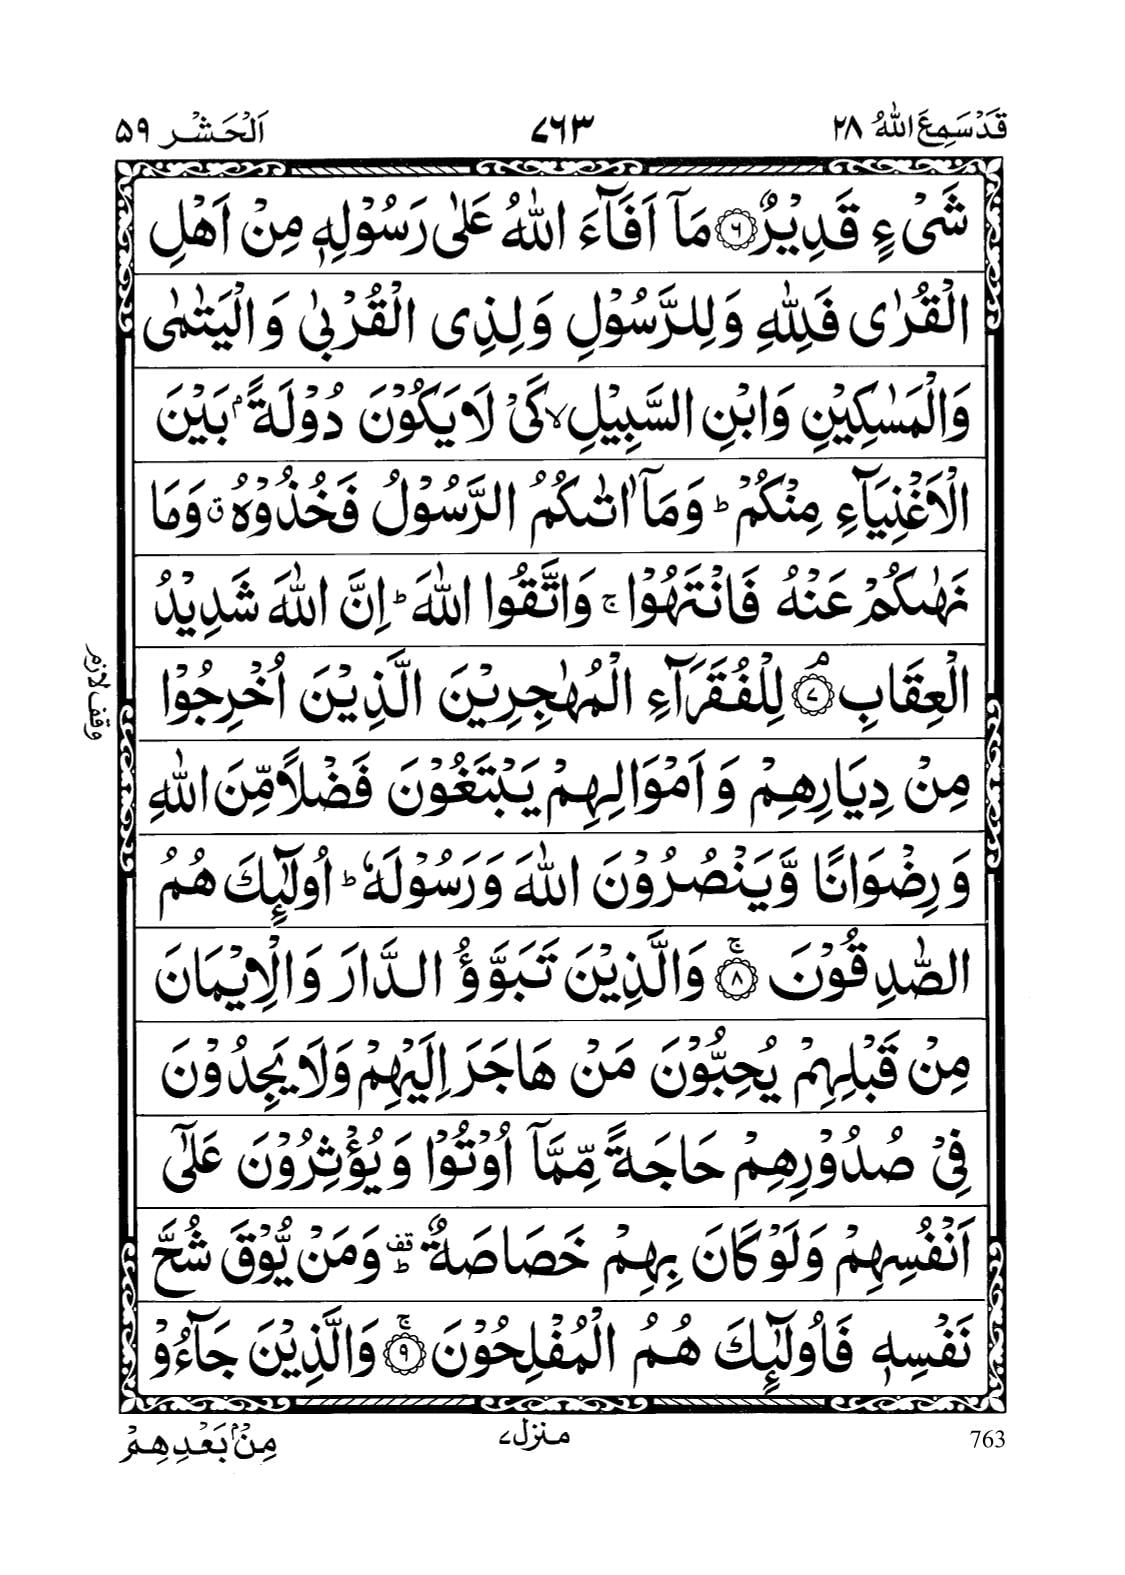 قَدْ سَمِعَ اللّٰهُ ٢٨
٧٦٣
اَلْحَشْر ٥٩
شَیْءٍ قَدِیْرٌ ۟۶ مَاۤ اَفَآءَ اللّٰهُ عَلٰی رَسُوْلِهٖ مِنْ اَهْلِ
الْقُرٰی فَلِلّٰهِ وَلِلرَّسُوْلِ وَلِذِی الْقُرْبٰی وَالْیَتٰمٰی
وَالْمَسٰكِیْنِ وَابْنِ السَّبِیْلِ ۙ كَیْ لَا یَكُوْنَ دُوْلَةًۢ بَیْنَ
الْاَغْنِیَآءِ مِنْكُمْ ؕ وَمَاۤ اٰتٰىكُمُ الرَّسُوْلُ فَخُذُوْهُ ۗ وَمَا
نَهٰىكُمْ عَنْهُ فَانْتَهُوْا ۚ وَاتَّقُوا اللّٰهَ ؕ اِنَّ اللّٰهَ شَدِیْدُ
الْعِقَابِ ۘ۷ لِلْفُقَرَآءِ الْمُهٰجِرِیْنَ الَّذِیْنَ اُخْرِجُوْا
وقف لازم
مِنْ دِیَارِهِمْ وَاَمْوَالِهِمْ یَبْتَغُوْنَ فَضْلًا مِّنَ اللّٰهِ
وَرِضْوَانًا وَّیَنْصُرُوْنَ اللّٰهَ وَرَسُوْلَهٗ ؕ اُولٰٓىِٕكَ هُمُ
الصّٰدِقُوْنَ ۚ۸ وَالَّذِیْنَ تَبَوَّؤُ الدَّارَ وَالْاِیْمَانَ
مِنْ قَبْلِهِمْ یُحِبُّوْنَ مَنْ هَاجَرَ اِلَیْهِمْ وَلَا یَجِدُوْنَ
فِیْ صُدُوْرِهِمْ حَاجَةً مِّمَّاۤ اُوْتُوْا وَیُؤْثِرُوْنَ عَلٰۤی
اَنْفُسِهِمْ وَلَوْ كَانَ بِهِمْ خَصَاصَةٌ ؕ قف وَمَنْ یُّوْقَ شُحَّ
نَفْسِهٖ فَاُولٰٓىِٕكَ هُمُ الْمُفْلِحُوْنَ ۚ۹ وَالَّذِیْنَ جَآءُوْ
مِنْۢ بَعْدِهِمْ
منزل ٧
763